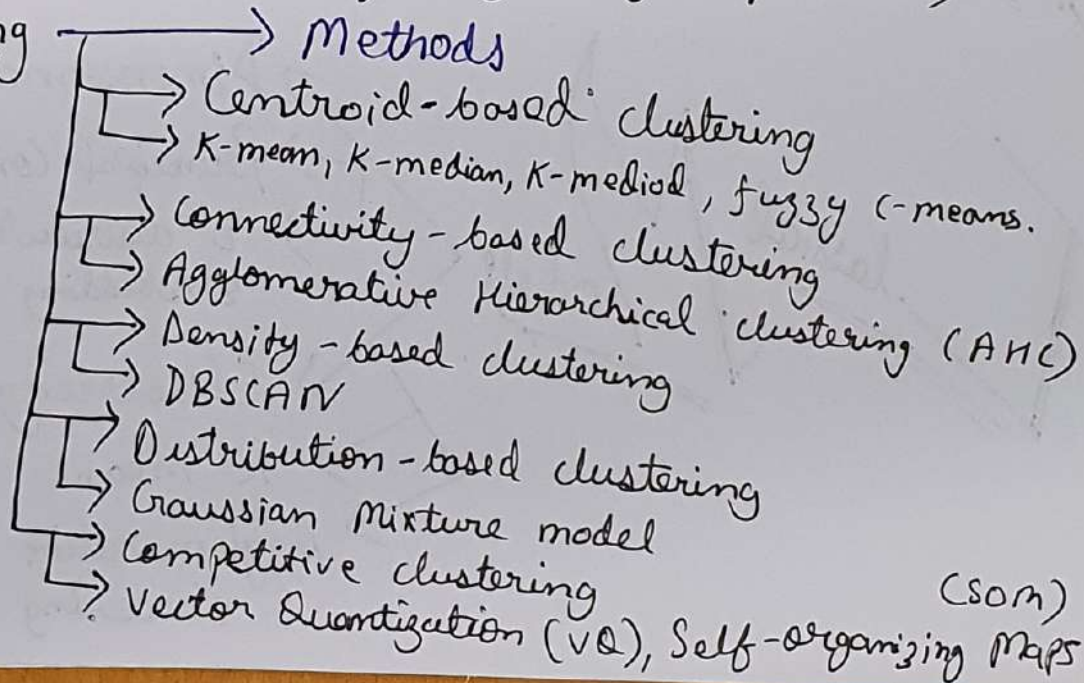 ng → Methods
→ Centroid-based clustering
→ K-mean, K-median, K-mediod, fuzzy C-means.
→ Connectivity-based clustering
→ Agglomerative Hierarchical clustering (AHC)
→ Density-based clustering
→ DBSCAN
→ Distribution-based clustering
→ Gaussian Mixture model
→ Competitive clustering
(SOM)
→ Vector Quantization (VQ), Self-organizing Maps